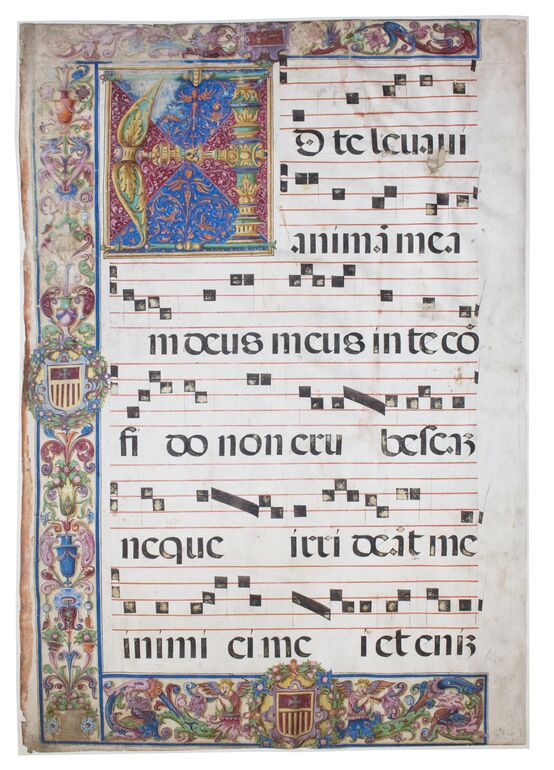 Ad te levavi
animā mea
m deus meus in te cō
fi do non eru bescaȝ
neque irri deāt me
inimi ci me i et eniȝ